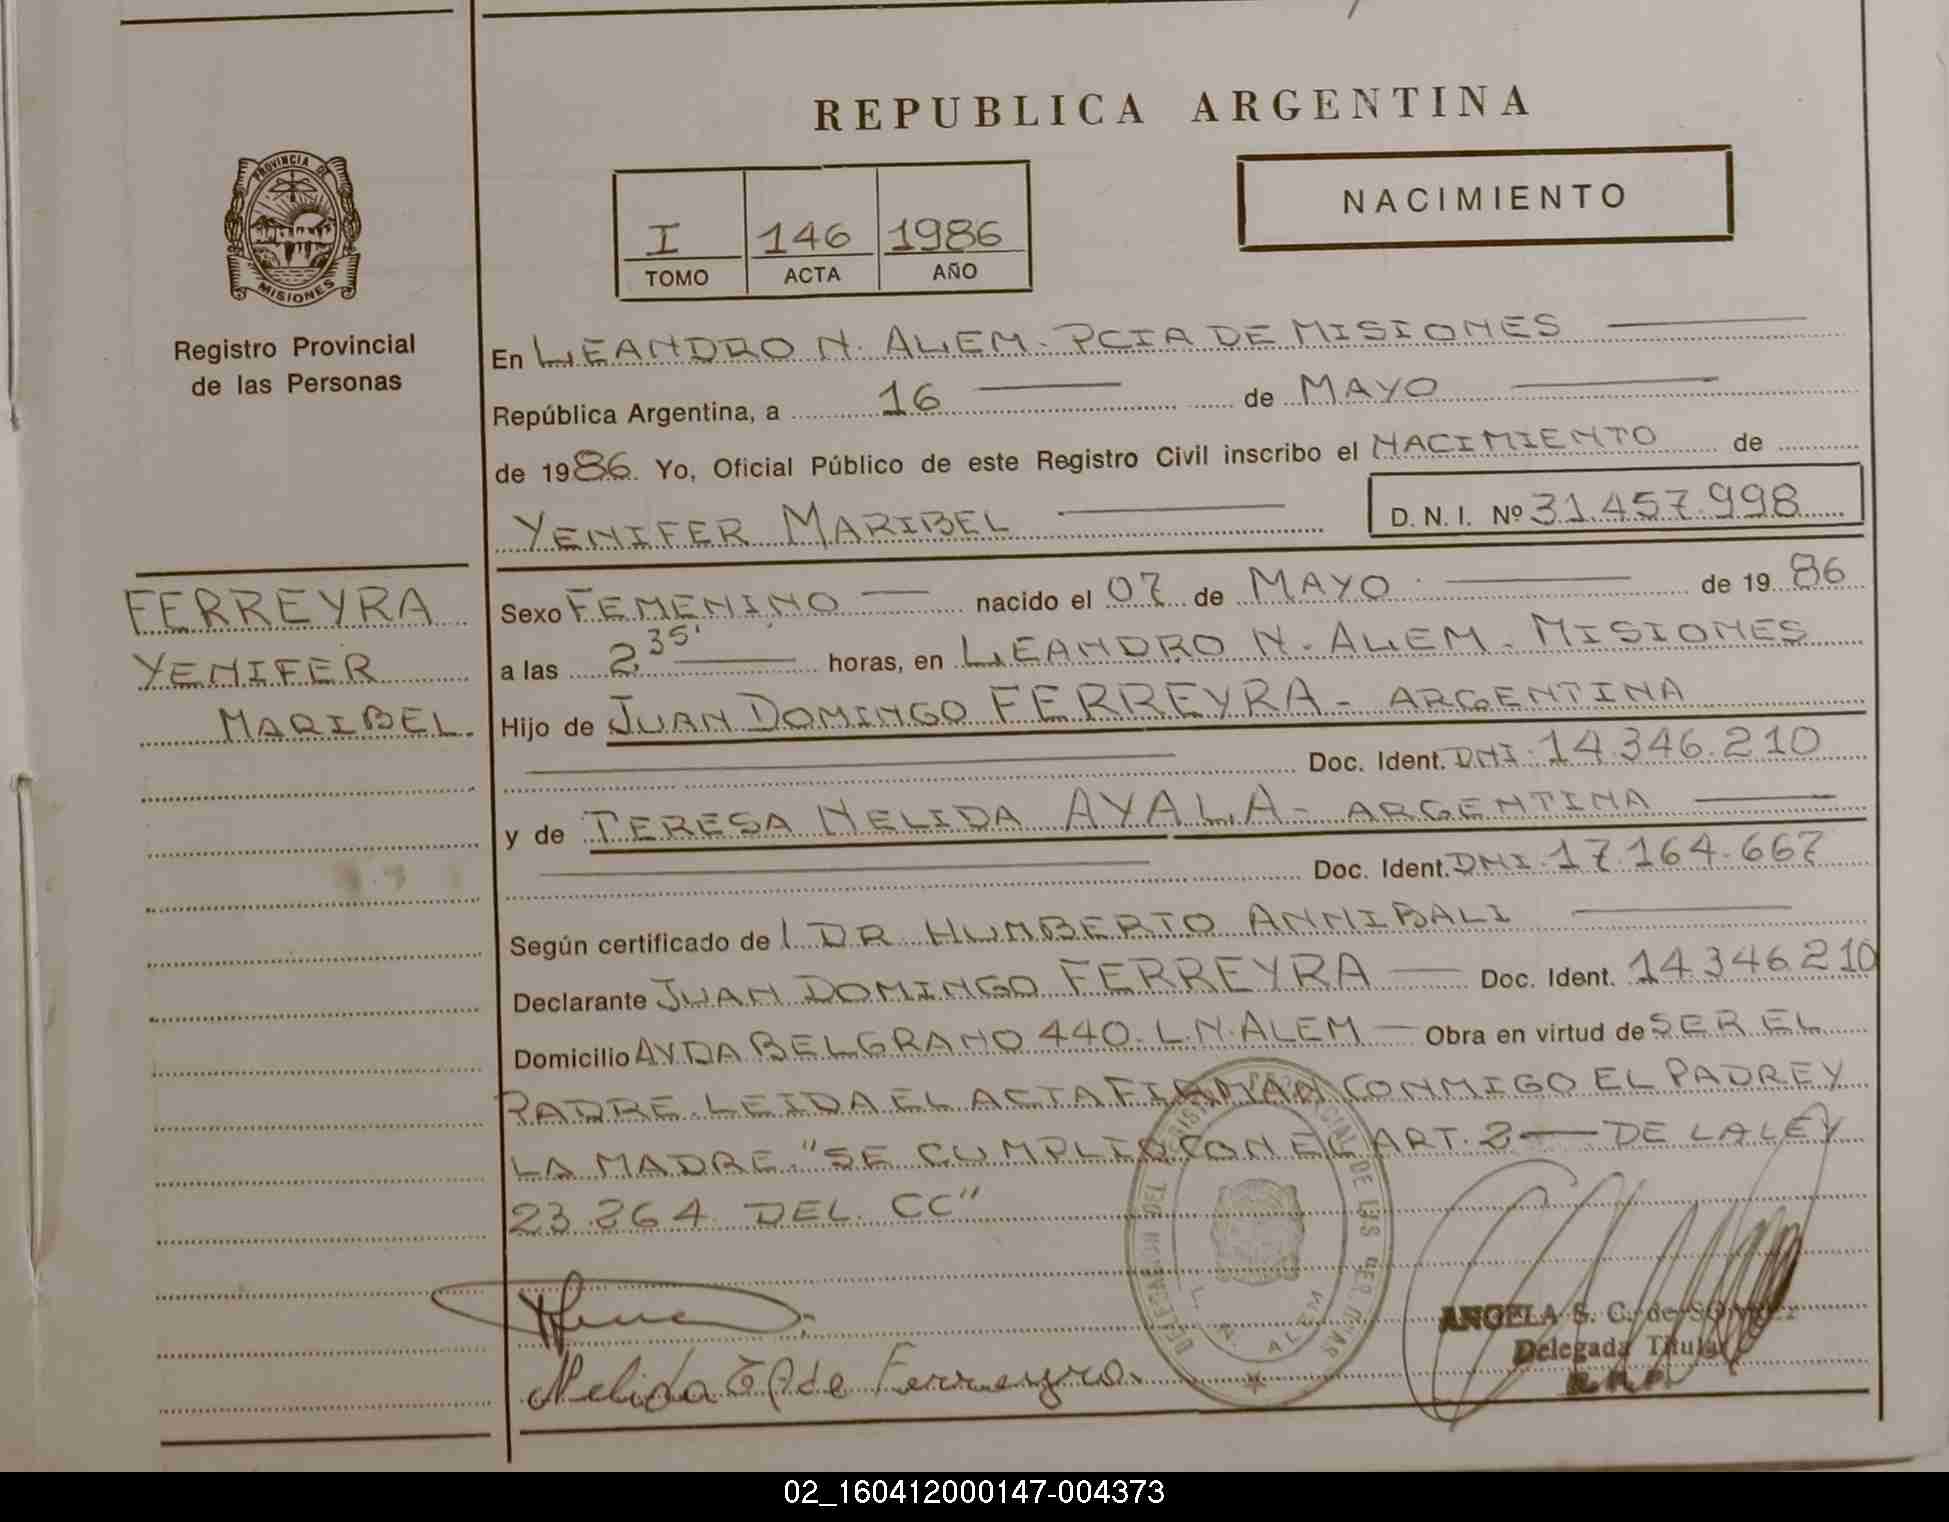 REPUBLICA ARGENTINA
PROVINCIA DE
MISIONES
Registro Provincial
de las Personas
I 146 1986
TOMO ACTA AÑO
NACIMIENTO
En LEANDRO N. ALEM - PCIA DE MISIONES
República Argentina, a 16 de MAYO
de 1986. Yo, Oficial Público de este Registro Civil inscribo el NACIMIENTO de
YENIFER MARIBEL
D. N. I. Nº 31.457.998
FERREYRA
YENIFER
MARIBEL.
Sexo FEMENINO nacido el 07 de MAYO de 1986
a las 2 35' horas, en LEANDRO N. ALEM - MISIONES
Hijo de JUAN DOMINGO FERREYRA - ARGENTINA
Doc. Ident. DNI. 14.346.210
y de TERESA NELIDA AYALA - ARGENTINA
Doc. Ident. DNI. 17.164.667
Según certificado de DR HUMBERTO ANNIBALI
Declarante JUAN DOMINGO FERREYRA Doc. Ident. 14.346.210
Domicilio AVDA BELGRANO 440 - L.N. ALEM Obra en virtud de SER EL
PADRE. LEIDA EL ACTA FIRMAN CONMIGO EL PADRE Y
LA MADRE. "SE CUMPLIO CON EL ART. 2 DE LA LEY
23.264 DEL CC"
DELEGACION DEL REGISTRO PROVINCIAL DE LAS PERSONAS
L. N. ALEM
Nelida de Ferreyra
ANGELA S. C. de
Delegada Titular
R.P.P.
02_160412000147-004373